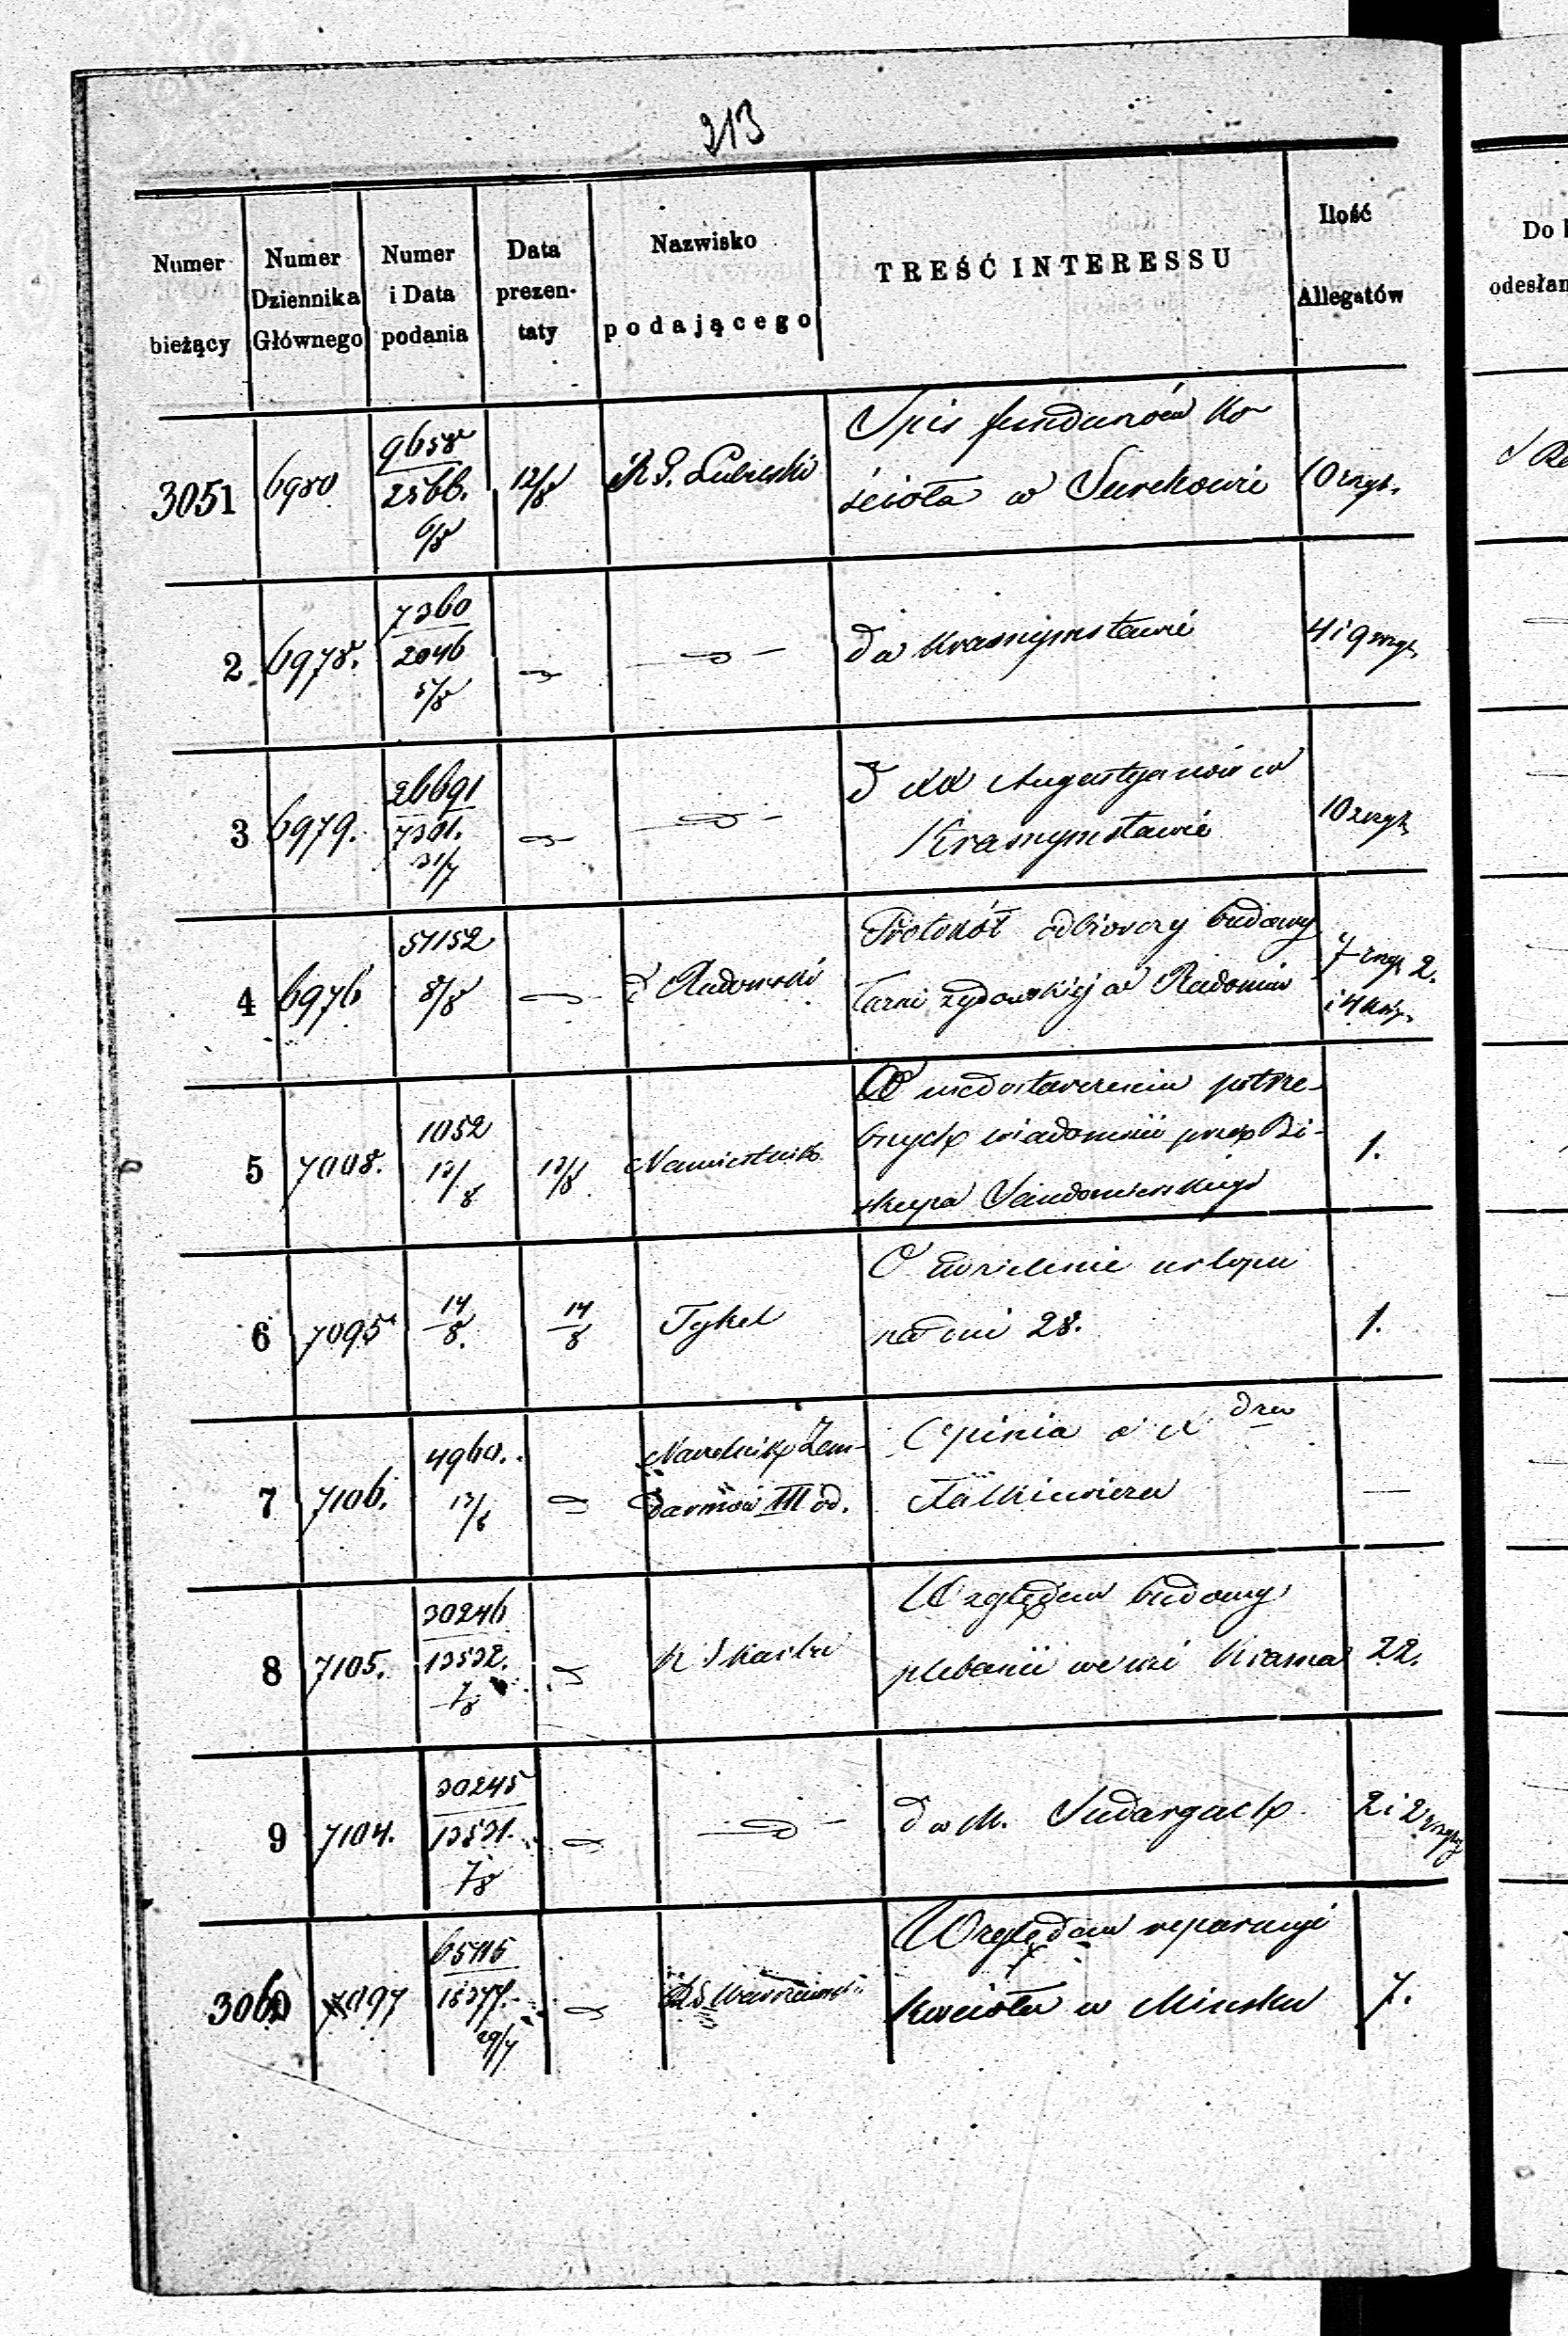 213
Numer bieżący | Numer Dziennika Głównego | Numer i Data podania | Data prezentaty | Nazwisko podającego | TREŚĆ INTERESSU | Ilość Allegatów
Do
odesłan
3051 | 6980 | 9658 / 2566. 6/8 | 12/8 | R. G. Lubelski | Spis funduszów Ko-
ścioła w Surhowie | 10 zszyt.
2 | 6978. | 7360 / 2046 5/8 | d w Krasnymstawie | 4 i 9 zszyt.
3 | 6979. | 26691 / 7301. 31/7 | Augustyanów w
Krasnymstawie | 10 zszyt.
4 | 6976 | 51152 8/8 | d Radomski | Protokół odbiorczy budowy
żydowskiej w Radomiu | 7 zszyt. 2.
5 | 7008. | 1052 13/8 | 13/8 | Namiestnik | O niedostarczeniu potrze-
bnych wiadomości przez Bi-
skupa Sandomierskiego | 1.
6 | 7095 | 14/8. | 14/8 | Tykel | O udzielenie urlopu
na dni 28. | 1.
7 | 7106. | 4960. 13/8 | Naczelnik Żan-
darmów III od. | Opinia o X drze
Falkiewiczu | —
8 | 7105. | 30246 / 13532. 7/8 | K S Skarbu | Względem budowy
plebanii we wsi Krasna | 22.
9 | 7104. | 30245 / 13531. 7/8 | d w M. Sudargach | 2 i 2 zszyt
3060 | 7097 | 65115 / 18377. 29/7 | R. G. Warszawski | Względem reparacyi
Kościoła w Mińsku | 7.